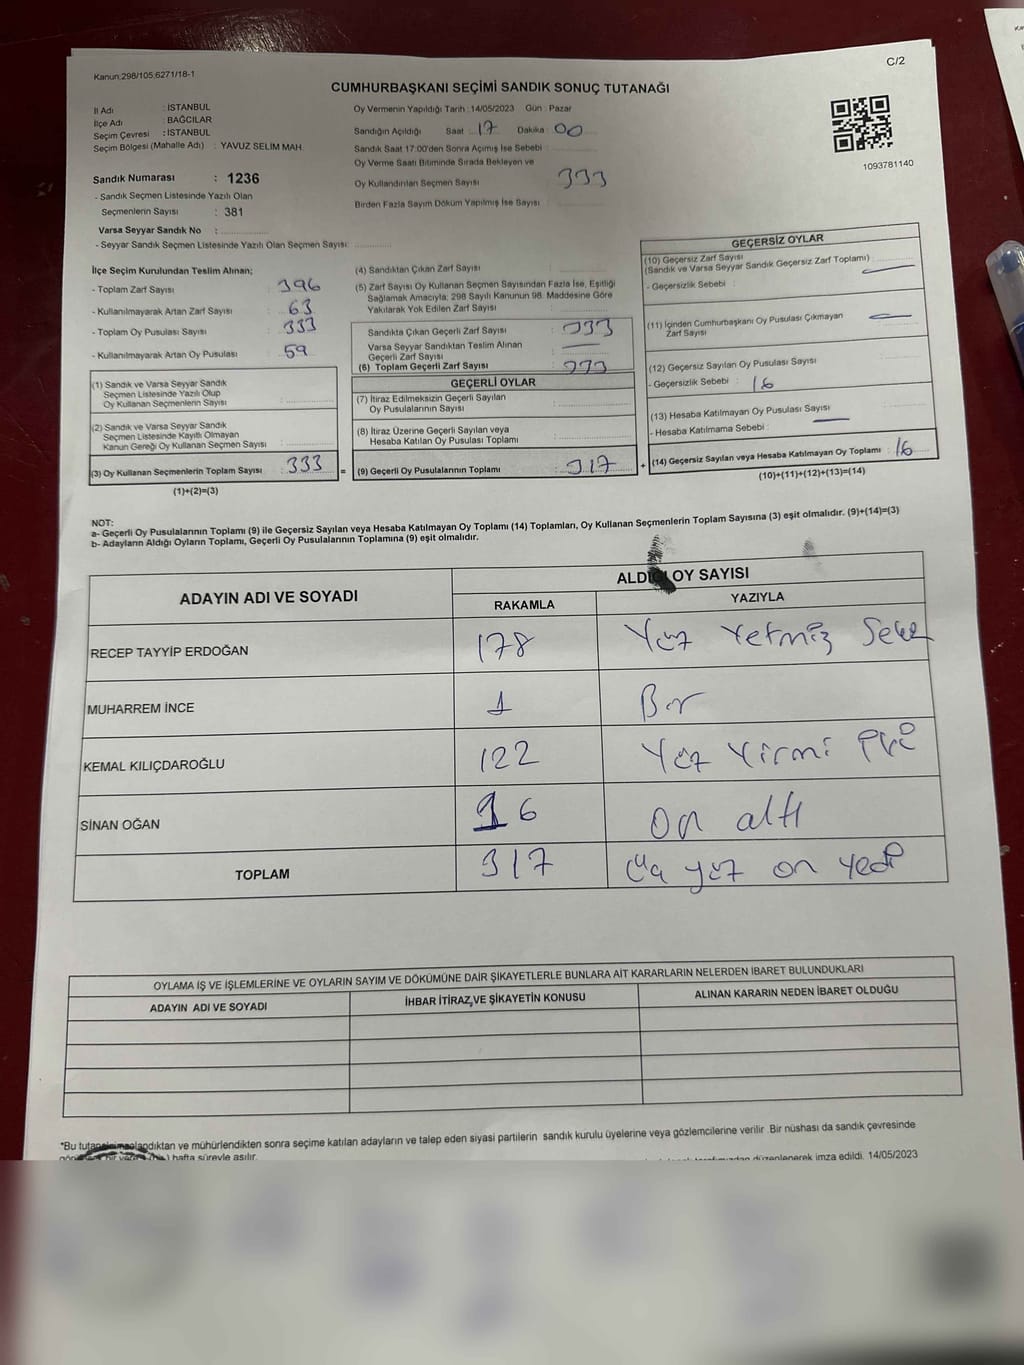 C/2
Kanun:298/105;6271/18-1
CUMHURBAŞKANI SEÇİMİ SANDIK SONUÇ TUTANAĞI
İl Adı : İSTANBUL
İlçe Adı : BAĞCILAR
Seçim Çevresi : İSTANBUL
Seçim Bölgesi (Mahalle Adı) : YAVUZ SELİM MAH.
Sandık Numarası : 1236
- Sandık Seçmen Listesinde Yazılı Olan
Seçmenlerin Sayısı : 381
Varsa Seyyar Sandık No :
- Seyyar Sandık Seçmen Listesinde Yazılı Olan Seçmen Sayısı:
Oy Vermenin Yapıldığı Tarih :14/05/2023 Gün : Pazar
Sandığın Açıldığı Saat : 17 Dakika : 00
Sandık Saat 17:00'den Sonra Açımış İse Sebebi :
Oy Verme Saati Bitiminde Sırada Bekleyen ve
Oy Kullandırılan Seçmen Sayısı : 333
Birden Fazla Sayım Döküm Yapılmış İse Sayısı :
1093781140
İlçe Seçim Kurulundan Teslim Alınan;
- Toplam Zarf Sayısı : 396
- Kullanılmayarak Artan Zarf Sayısı : 63
- Toplam Oy Pusulası Sayısı : 333
- Kullanılmayarak Artan Oy Pusulası : 59
(1) Sandık ve Varsa Seyyar Sandık
Seçmen Listesinde Yazılı Olup
Oy Kullanan Seçmenlerin Sayısı :
(2) Sandık ve Varsa Seyyar Sandık
Seçmen Listesinde Kayıtlı Olmayan
Kanun Gereği Oy Kullanan Seçmen Sayısı :
(3) Oy Kullanan Seçmenlerin Toplam Sayısı : 333 =
(1)+(2)=(3)
(4) Sandıktan Çıkan Zarf Sayısı :
(5) Zarf Sayısı Oy Kullanan Seçmen Sayısından Fazla İse, Eşitliği
Sağlamak Amacıyla; 298 Sayılı Kanunun 98. Maddesine Göre
Yakılarak Yok Edilen Zarf Sayısı :
Sandıkta Çıkan Geçerli Zarf Sayısı : 333
Varsa Seyyar Sandıktan Teslim Alınan
Geçerli Zarf Sayısı : —
(6) Toplam Geçerli Zarf Sayısı : 333
GEÇERLİ OYLAR
(7) İtiraz Edilmeksizin Geçerli Sayılan
Oy Pusulalarının Sayısı :
(8) İtiraz Üzerine Geçerli Sayılan veya
Hesaba Katılan Oy Pusulası Toplamı :
(9) Geçerli Oy Pusulalarının Toplamı : 317 +
GEÇERSİZ OYLAR
(10) Geçersiz Zarf Sayısı
(Sandık ve Varsa Seyyar Sandık Geçersiz Zarf Toplamı) : —
- Geçersizlik Sebebi :
(11) İçinden Cumhurbaşkanı Oy Pusulası Çıkmayan
Zarf Sayısı : —
(12) Geçersiz Sayılan Oy Pusulası Sayısı :
- Geçersizlik Sebebi : 16
(13) Hesaba Katılmayan Oy Pusulası Sayısı : —
- Hesaba Katılmama Sebebi :
(14) Geçersiz Sayılan veya Hesaba Katılmayan Oy Toplamı : 16
(10)+(11)+(12)+(13)=(14)
NOT:
a- Geçerli Oy Pusulalarının Toplamı (9) ile Geçersiz Sayılan veya Hesaba Katılmayan Oy Toplamı (14) Toplamları, Oy Kullanan Seçmenlerin Toplam Sayısına (3) eşit olmalıdır. (9)+(14)=(3)
b- Adayların Aldığı Oyların Toplamı, Geçerli Oy Pusulalarının Toplamına (9) eşit olmalıdır.
ADAYIN ADI VE SOYADI
ALDIĞI OY SAYISI
RAKAMLA YAZIYLA
RECEP TAYYİP ERDOĞAN 178 Yüz Yetmiş Sekiz
MUHARREM İNCE 1 Bir
KEMAL KILIÇDAROĞLU 122 Yüz Yirmi iki
SİNAN OĞAN 16 On altı
TOPLAM 317 Üç yüz on yedi
OYLAMA İŞ VE İŞLEMLERİNE VE OYLARIN SAYIM VE DÖKÜMÜNE DAİR ŞİKAYETLERLE BUNLARA AİT KARARLARIN NELERDEN İBARET BULUNDUKLARI
ADAYIN ADI VE SOYADI İHBAR İTİRAZ,VE ŞİKAYETİN KONUSU ALINAN KARARIN NEDEN İBARET OLDUĞU
*Bu tutanak imzalandıktan ve mühürlendikten sonra seçime katılan adayların ve talep eden siyasi partilerin sandık kurulu üyelerine veya gözlemcilerine verilir .Bir nüshası da sandık çevresinde
hafta süreyle asılır. düzenlenerek imza edildi. 14/05/2023